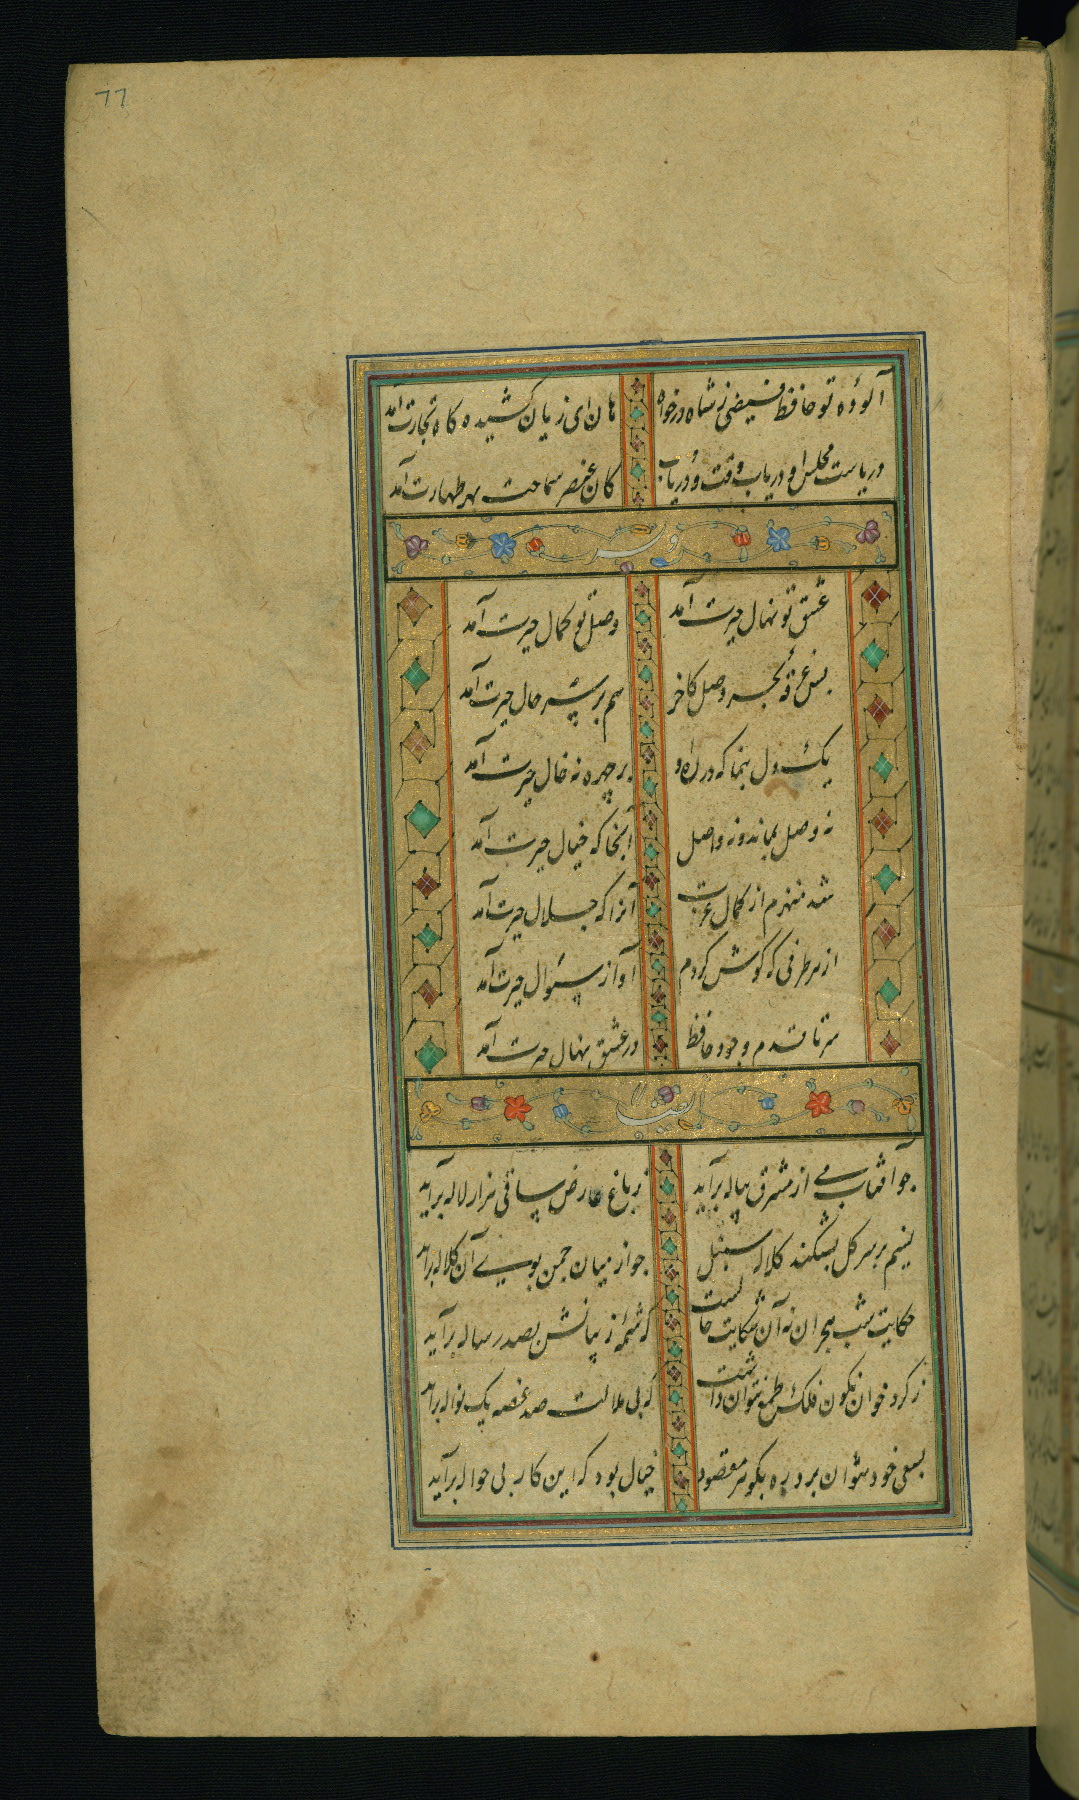 77
آلوده تو حافظ فیضی ز شاه درخواه هان ای زیان کشیده کاه تجارت آمد
دریاست مجلس او دریاب وقت و دریاب کان عنصر سماحت بهر طهارت آمد
وله
عشق تو نهال حیرت آمد وصل تو کمال حیرت آمد
بس غرقه بحر وصل کاخر هم بر سر حال حیرت آمد
یک دل بنما که در ره او بر چهره نه خال حیرت آمد
نه وصل بماند و نه واصل آنجا که خیال حیرت آمد
شد منهزم از کمال عزت آنرا که جلال حیرت آمد
از هر طرفی که گوش کردم آواز سئوال حیرت آمد
سر تا قدم وجود حافظ در عشق نهال حیرت آمد
ایضا
چو آفتاب می از مشرق پیاله برآید ز باغ عارض ساقی هزار لاله برآید
نسیم بر سر کل بشکند کلاله سنبل چو از میان چمن بوی آن کلاله برآید
حکایت شب هجران نه آن شکایت حالیست که شمهٔ ز بیانش بصد رساله برآید
ز کرد خوان نکون فلک طمع نتوان داشت که بی ملالت صد غصه یک نواله برآید
بسعی خود نتوان برد ره بکوهر مقصود خیال بود که این کار بی حواله برآید